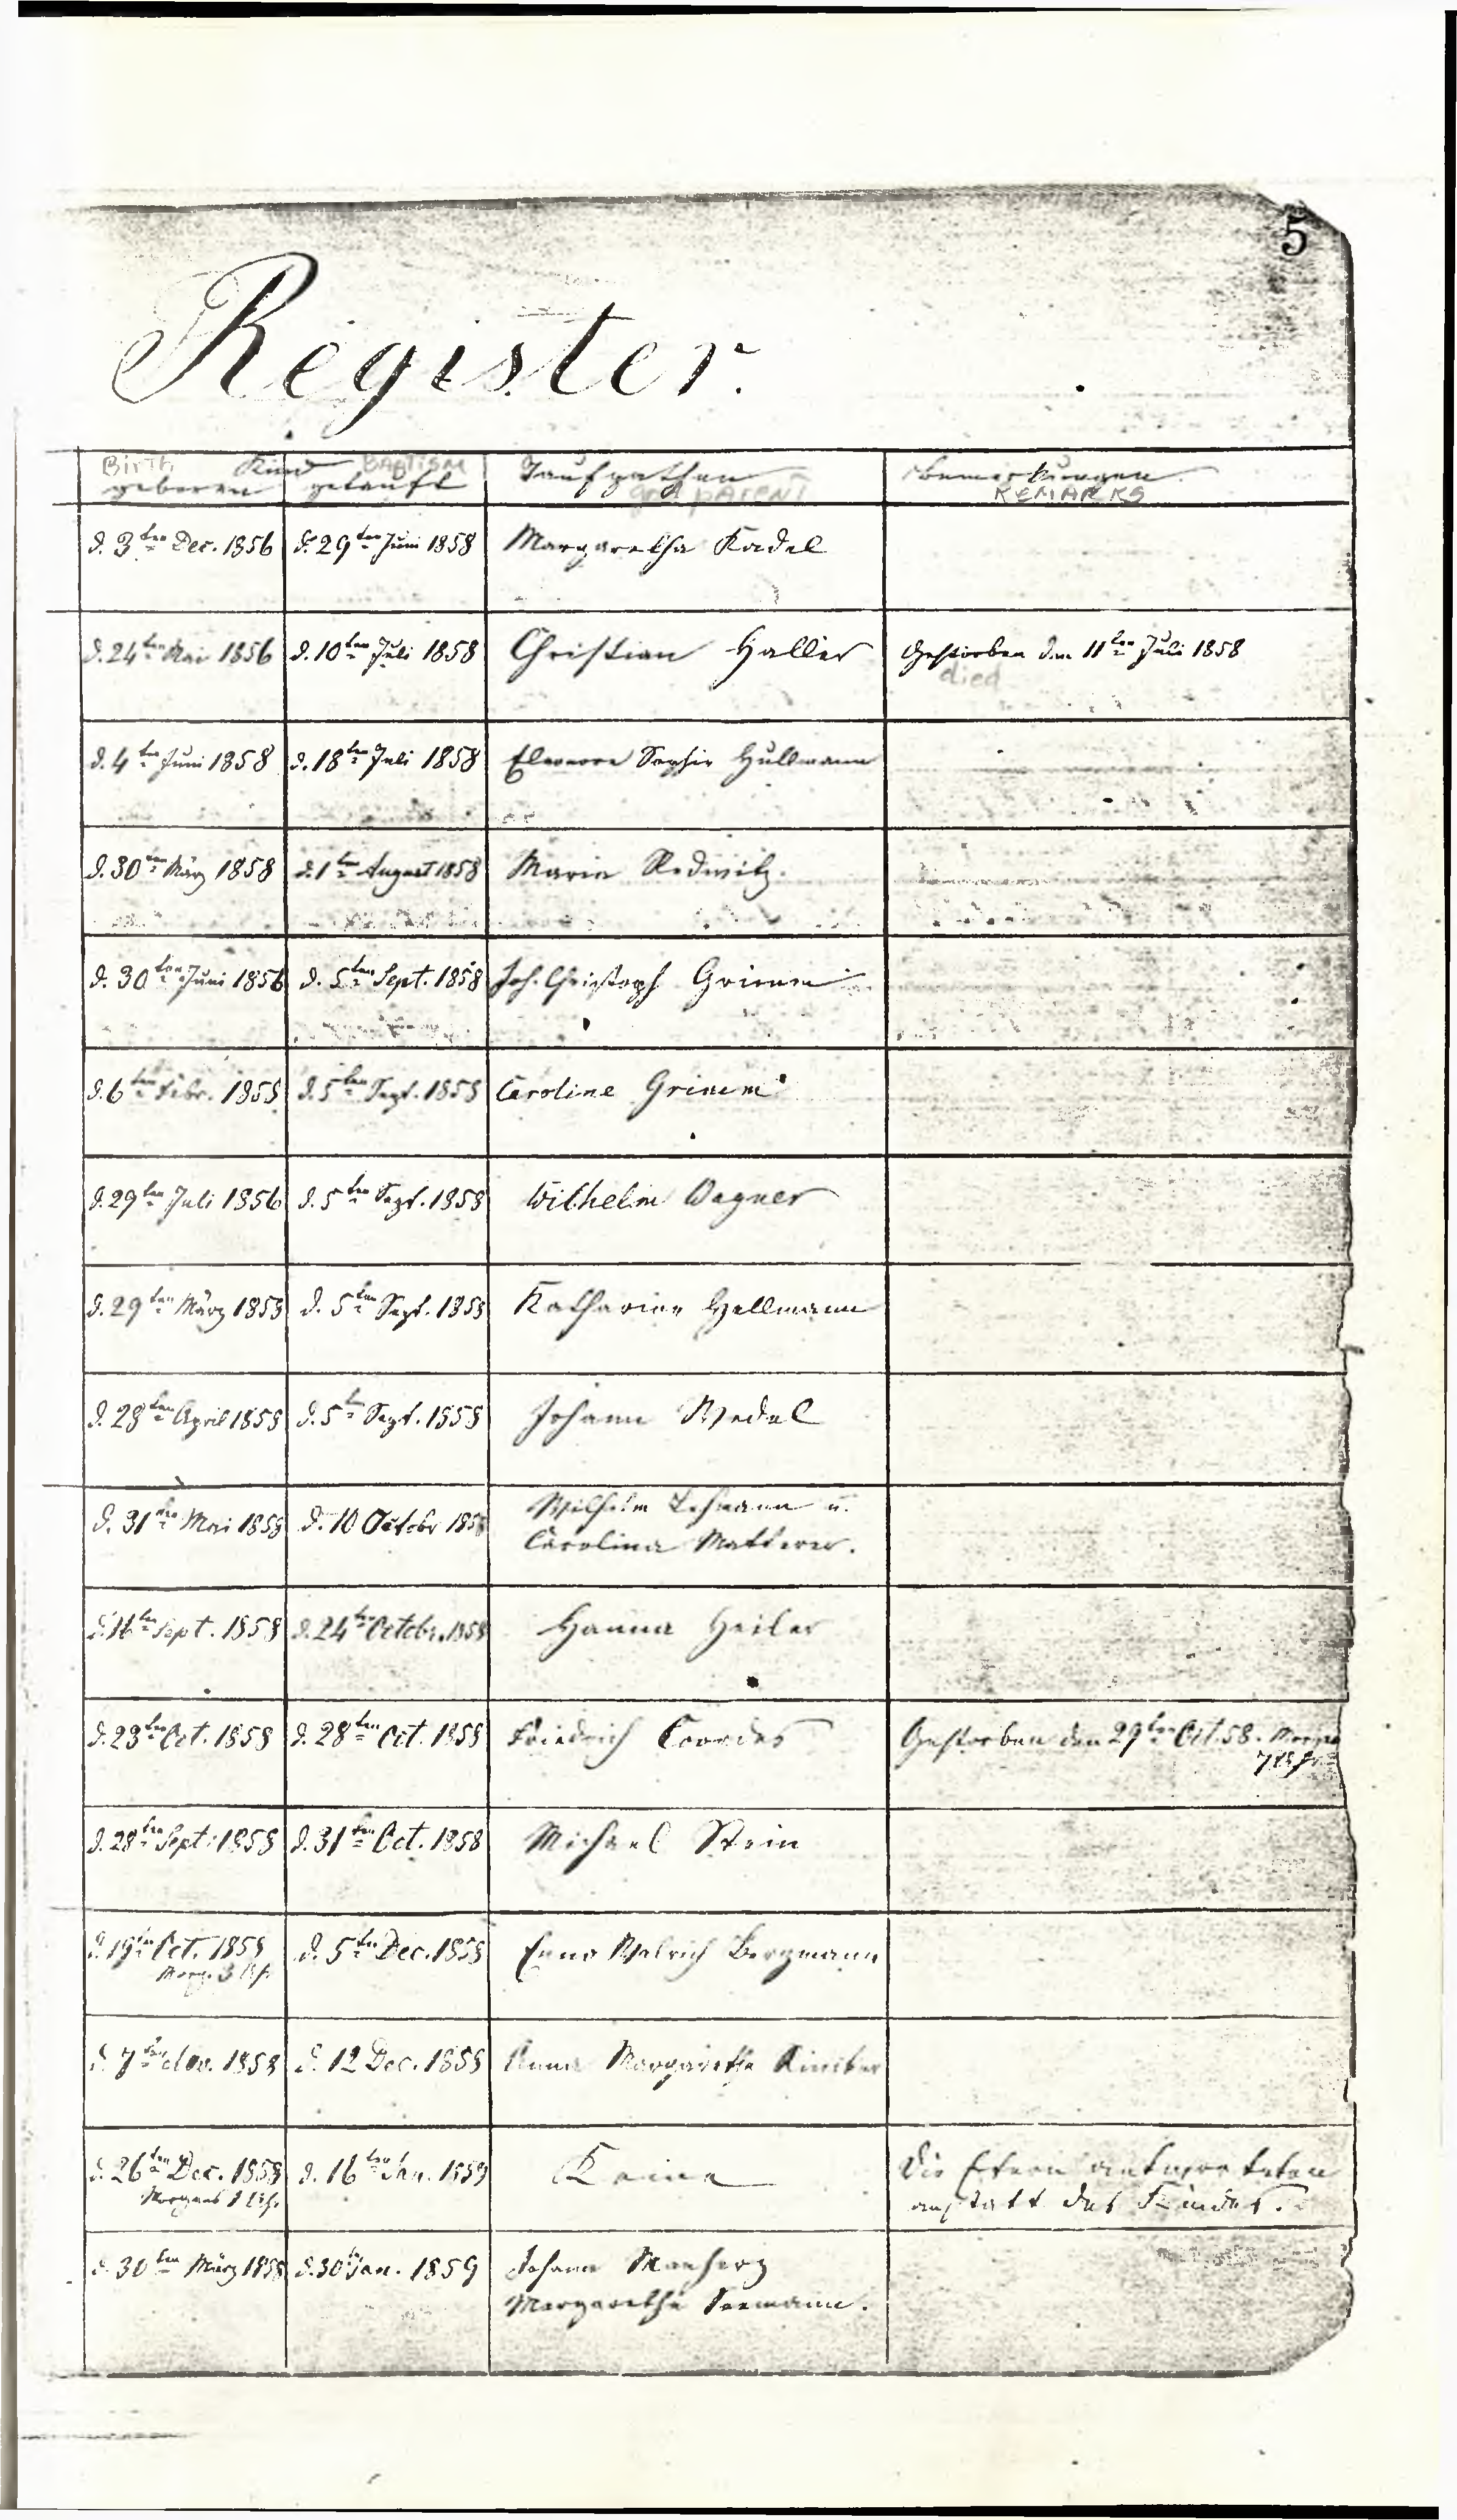 5
Register.
Birth Kind BAPTISM
geboren getauft Taufpathen Bemerkungen
god PARENT REMARKS
d. 3ten Dec. 1856 d. 29ten Juni 1858 Margaretha Kadel
d. 24ten Mai 1856 d. 10ten Juli 1858 Christian Haller Gestorben den 11ten Juli 1858
died
d. 4ten Juni 1858 d. 18ten Juli 1858 Eleonore Sophie Hüllmann
d. 30ten März 1858 d. 1ten August 1858 Maria Redwitz.
d. 30ten Juni 1856 d. 5ten Sept. 1858 Joh. Christoph Grimm
d. 6ten Febr. 1858 d. 5ten Sept. 1858 Caroline Grimm
d. 29ten Juli 1856 d. 5ten Sept. 1858 Wilhelm Wagner
d. 29ten März 1858 d. 5ten Sept. 1858 Katharine Hellmann
d. 28ten April 1858 d. 5ten Sept. 1858 Johann Wedel
d. 31ten Mai 1858 d. 10 Octobr 1858 Wilhelm Lehmann u.
Carolina
d. 16ten Sept. 1858 d. 24ten Octobr. 1858 Hanna Heiler
d. 23ten Oct. 1858 d. 28ten Oct. 1858 Friedrich Coordes Gestorben den 29ten Oct. 58. Morgens
7 Uhr
d. 28ten Sept. 1858 d. 31ten Oct. 1858 Michael Stein
d. 19ten Oct. 1858 d. 5ten Dec. 1858 Enno Ulrich Bergmann
Morg. 3 Uhr
d. 7ten Nov. 1858 d. 12 Dec. 1858 Anna Margaretha
d. 26ten Dec. 1858 d. 16ten Jan. 1859 Keine Die Eltern antworteten
Morgens 1 Uhr anstatt des Kindes.
d. 30ten März 1858 d. 30 Jan. 1859 Johann Manherz
Margaretha Seemann.